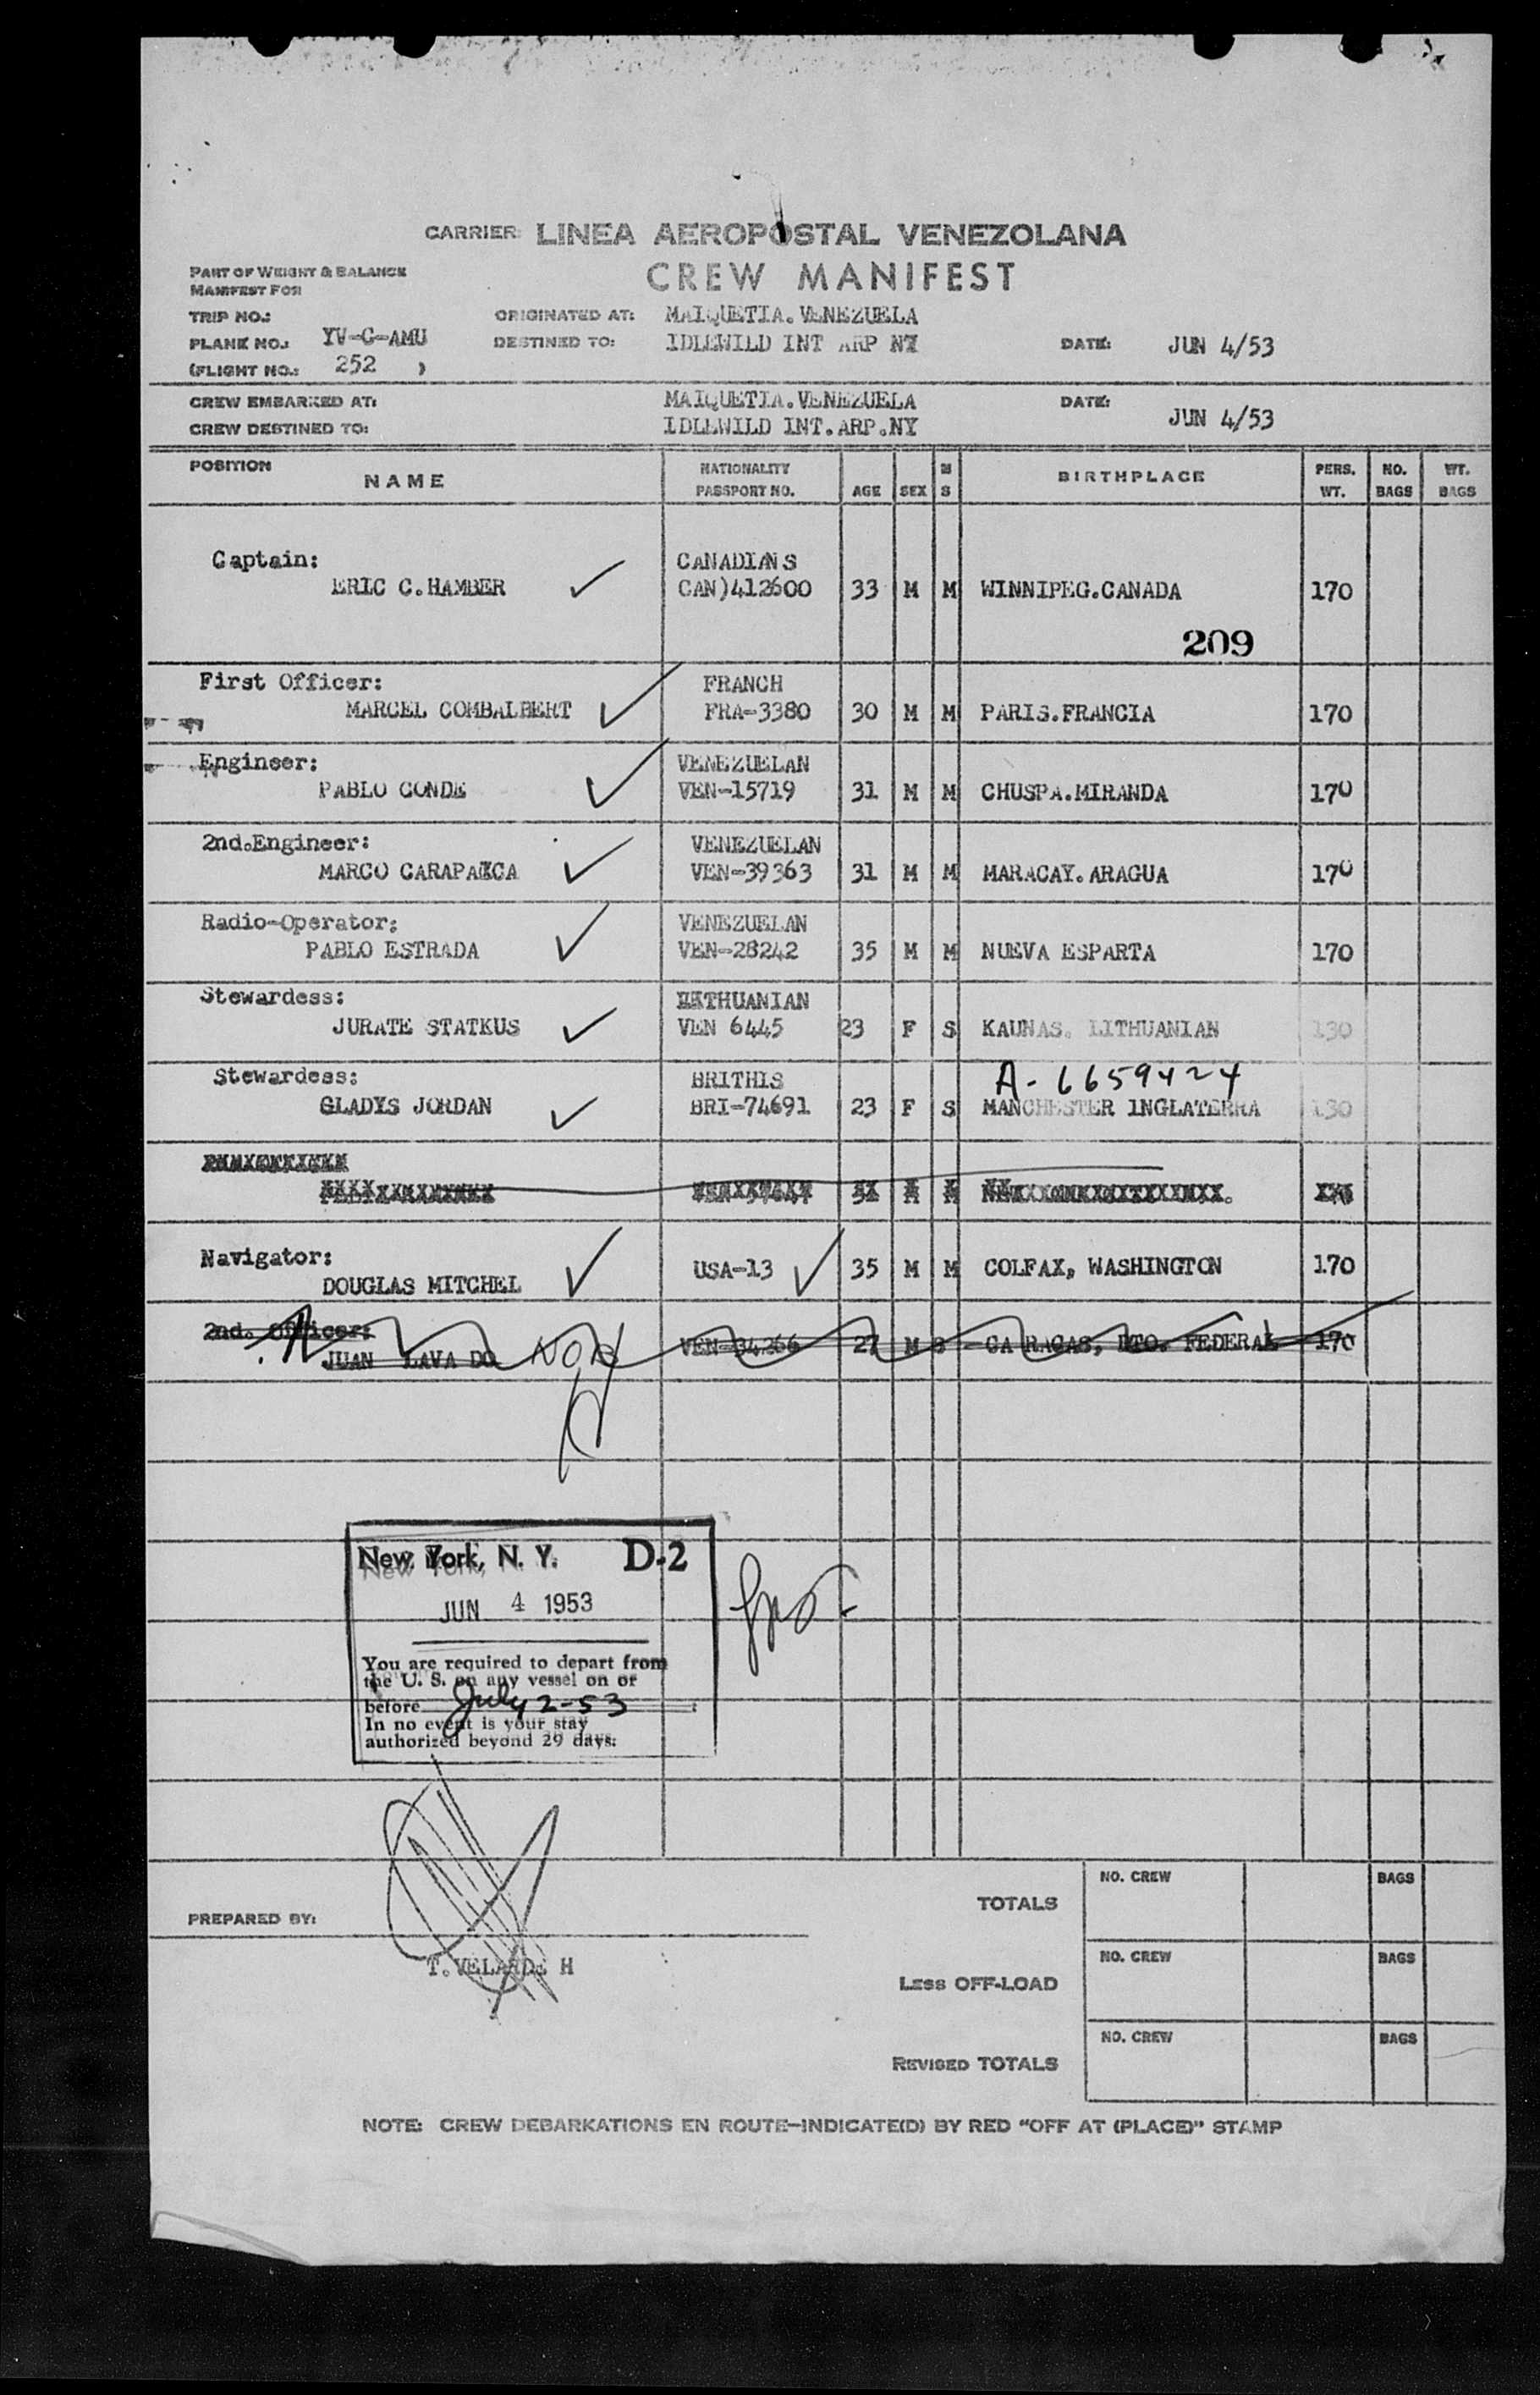 CARRIER: LINEA AEROPOSTAL VENEZOLANA
CREW MANIFEST
PART OF WEIGHT & BALANCE
MANIFEST FOR:
TRIP NO.: ORIGINATED AT: MAIQUETIA.VENEZUELA
PLANE NO.: YV-C-AMU DESTINED TO: IDLEWILD INT ARP NY DATE: JUN 4/53
(FLIGHT NO.: 252 )
CREW EMBARKED AT: MAIQUETIA.VENEZUELA DATE:
CREW DESTINED TO: IDLEWILD INT.ARP.NY JUN 4/53
POSITION NAME NATIONALITY PASSPORT NO. AGE SEX M S BIRTHPLACE PERS. WT. NO. BAGS WT. BAGS
Captain: CANADIANS
ERIC C.HAMBER CAN)412600 33 M M WINNIPEG.CANADA 170
209
First Officer: FRANCH
MARCEL COMBALBERT FRA-3380 30 M M PARIS.FRANCIA 170
Engineer: VENEZUELAN
PABLO CONDE VEN-15719 31 M M CHUSPA.MIRANDA 170
2nd.Engineer: VENEZUELAN
MARCO CARAPAICA VEN-39363 31 M M MARACAY.ARAGUA 170
Radio-Operator: VENEZUELAN
PABLO ESTRADA VEN-28242 35 M M NUEVA ESPARTA 170
Stewardess: LITHUANIAN
JURATE STATKUS VEN 6445 23 F S KAUNAS. LITHUANIAN 130
A-6659424
Stewardess: BRITHIS
GLADYS JORDAN BRI-74691 23 F S MANCHESTER INGLATERRA 130
Navigator:
DOUGLAS MITCHEL USA-13 35 M M COLFAX, WASHINGTON 170
2nd. Officer:
JUAN LAVA DO VEN-34266 27 M S CA RACAS, DTO. FEDERAL 170
New York, N. Y. D-2
JUN 4 1953
You are required to depart from
the U. S. on any vessel on or
before July 2-53
In no event is your stay
authorized beyond 29 days.
PREPARED BY:
T.VELARDE H
TOTALS NO. CREW BAGS
LESS OFF-LOAD NO. CREW BAGS
REVISED TOTALS NO. CREW BAGS
NOTE: CREW DEBARKATIONS EN ROUTE—INDICATE(D) BY RED "OFF AT (PLACE)" STAMP